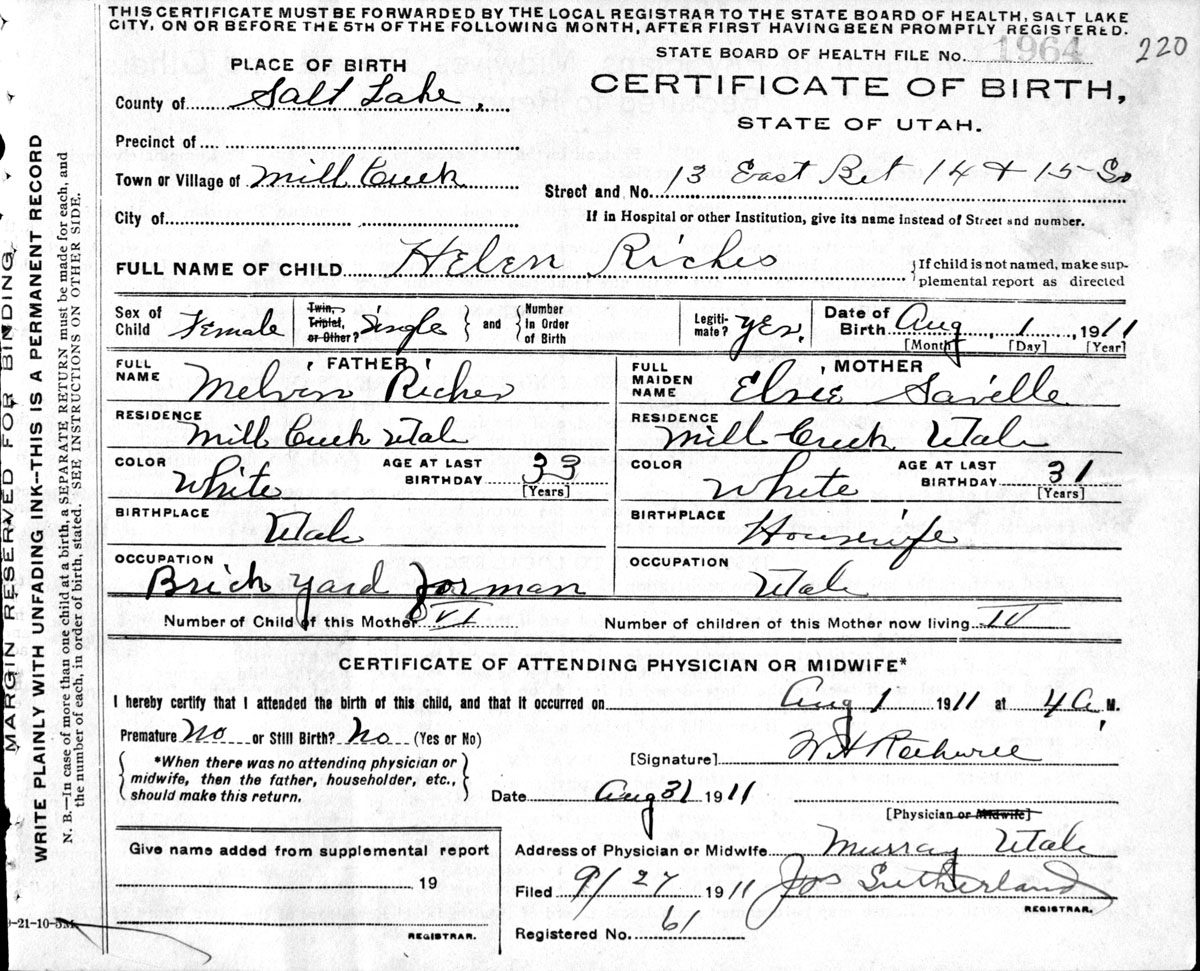 THIS CERTIFICATE MUST BE FORWARDED BY THE LOCAL REGISTRAR TO THE STATE BOARD OF HEALTH, SALT LAKE
CITY, ON OR BEFORE THE 5TH OF THE FOLLOWING MONTH, AFTER FIRST HAVING BEEN PROMPTLY REGISTERED.
STATE BOARD OF HEALTH FILE No. 1964 220
PLACE OF BIRTH
CERTIFICATE OF BIRTH,
STATE OF UTAH.
County of Salt Lake
Precinct of
Town or Village of Mill Creek
Street and No. 13 East Bet 14 + 15 So
City of
If in Hospital or other Institution, give its name instead of Street and number.
FULL NAME OF CHILD Helen Riches
{If child is not named, make sup-
plemental report as directed
Sex of Child Female
Twin, Triplet, or Other? Single } and { Number In Order of Birth
Legiti-mate? yes,
Date of Birth Aug 1, 1911
[Month] [Day] [Year]
FATHER
FULL NAME Melvin Riches
MOTHER
FULL MAIDEN NAME Elsie Saville
RESIDENCE Mill Creek Utah
RESIDENCE Mill Creek Utah
COLOR White AGE AT LAST BIRTHDAY 33 [Years]
COLOR White AGE AT LAST BIRTHDAY 31 [Years]
BIRTHPLACE Utah
BIRTHPLACE Housewife
OCCUPATION Brick yard forman
OCCUPATION Utah
Number of Child of this Mother VI
Number of children of this Mother now living IV
CERTIFICATE OF ATTENDING PHYSICIAN OR MIDWIFE*
I hereby certify that I attended the birth of this child, and that it occurred on Aug 1 1911 at 4 A M.
Premature No or Still Birth? No (Yes or No)
[Signature] W H
{*When there was no attending physician or
midwife, then the father, householder, etc.,
should make this return. }
Date Aug 31 1911
[Physician or Midwife]
Address of Physician or Midwife Murray Utah
Give name added from supplemental report
19
REGISTRAR.
Filed 9/27 1911 Jos Sutherland
REGISTRAR.
Registered No. 61
MARGIN RESERVED FOR BINDING
WRITE PLAINLY WITH UNFADING INK--THIS IS A PERMANENT RECORD
N. B.—In case of more than one child at a birth, a SEPARATE RETURN must be made for each, and
the number of each, in order of birth, stated. SEE INSTRUCTIONS ON OTHER SIDE.